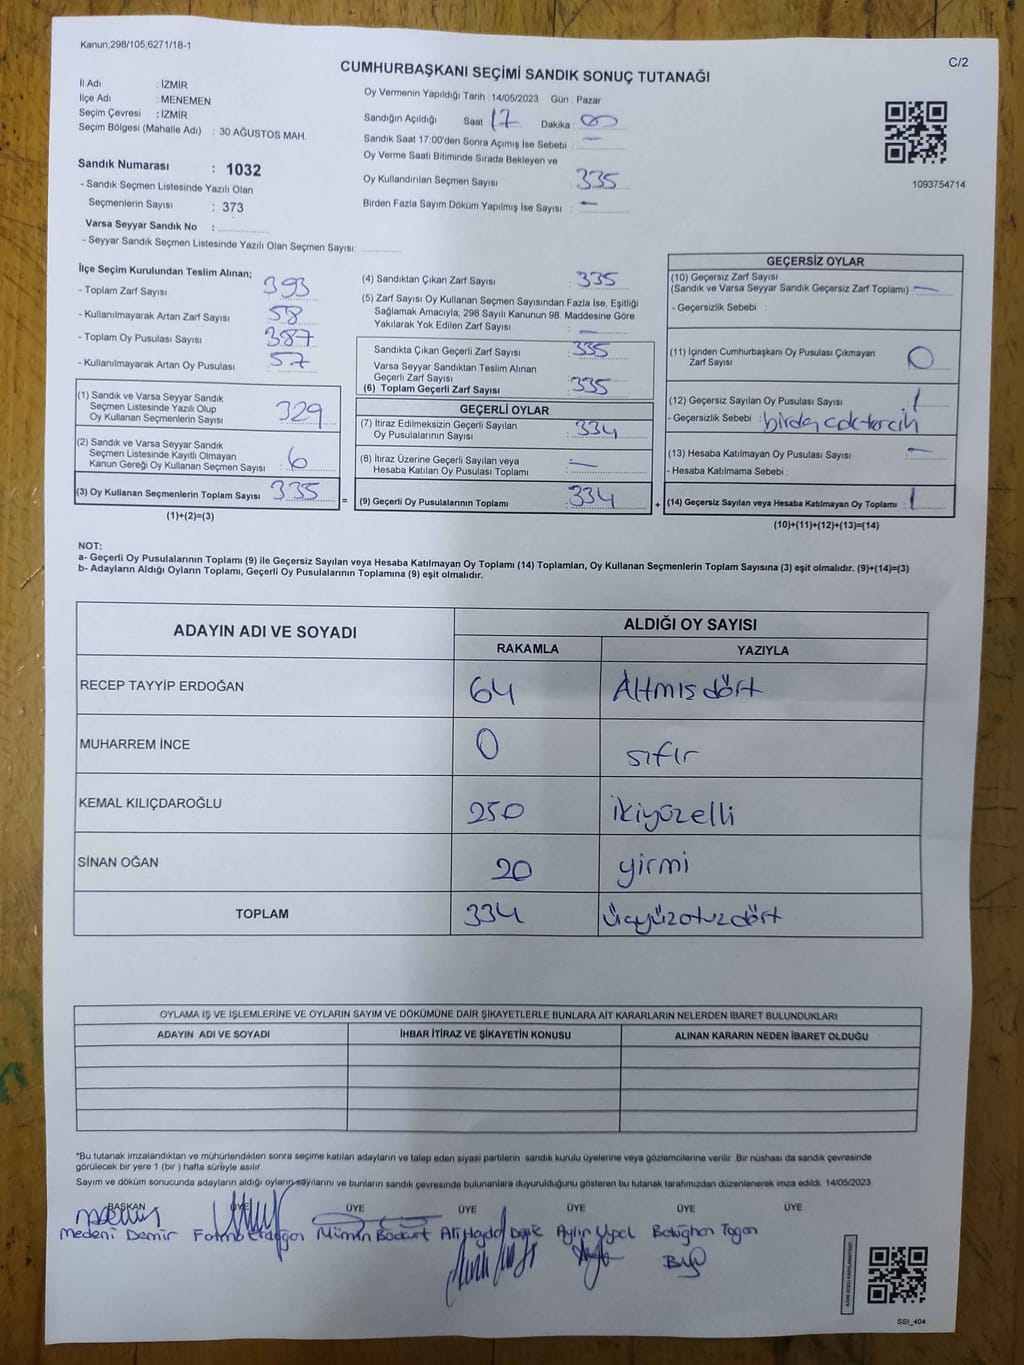 Kanun;298/105;6271/18-1
C/2
CUMHURBAŞKANI SEÇİMİ SANDIK SONUÇ TUTANAĞI
İl Adı : İZMİR
İlçe Adı : MENEMEN
Seçim Çevresi : İZMİR
Seçim Bölgesi (Mahalle Adı) : 30 AĞUSTOS MAH.
Sandık Numarası : 1032
- Sandık Seçmen Listesinde Yazılı Olan
Seçmenlerin Sayısı : 373
Varsa Seyyar Sandık No :
- Seyyar Sandık Seçmen Listesinde Yazılı Olan Seçmen Sayısı:
Oy Vermenin Yapıldığı Tarih :14/05/2023 Gün : Pazar
Sandığın Açıldığı Saat : 17 Dakika : 00
Sandık Saat 17:00'den Sonra Açımış İse Sebebi : —
Oy Verme Saati Bitiminde Sırada Bekleyen ve
Oy Kullandırılan Seçmen Sayısı 335
Birden Fazla Sayım Döküm Yapılmış İse Sayısı : —
1093754714
İlçe Seçim Kurulundan Teslim Alınan;
- Toplam Zarf Sayısı 393
- Kullanılmayarak Artan Zarf Sayısı 58
- Toplam Oy Pusulası Sayısı 387
- Kullanılmayarak Artan Oy Pusulası 57
(1) Sandık ve Varsa Seyyar Sandık
Seçmen Listesinde Yazılı Olup
Oy Kullanan Seçmenlerin Sayısı 329
(2) Sandık ve Varsa Seyyar Sandık
Seçmen Listesinde Kayıtlı Olmayan
Kanun Gereği Oy Kullanan Seçmen Sayısı : 6
(3) Oy Kullanan Seçmenlerin Toplam Sayısı : 335
(1)+(2)=(3)
=
(4) Sandıktan Çıkan Zarf Sayısı : 335
(5) Zarf Sayısı Oy Kullanan Seçmen Sayısından Fazla İse, Eşitliği
Sağlamak Amacıyla; 298 Sayılı Kanunun 98. Maddesine Göre
Yakılarak Yok Edilen Zarf Sayısı : —
Sandıkta Çıkan Geçerli Zarf Sayısı : 335
Varsa Seyyar Sandıktan Teslim Alınan
Geçerli Zarf Sayısı
(6) Toplam Geçerli Zarf Sayısı : 335
GEÇERLİ OYLAR
(7) İtiraz Edilmeksizin Geçerli Sayılan
Oy Pusulalarının Sayısı : 334
(8) İtiraz Üzerine Geçerli Sayılan veya
Hesaba Katılan Oy Pusulası Toplamı : —
(9) Geçerli Oy Pusulalarının Toplamı : 334
+
GEÇERSİZ OYLAR
(10) Geçersiz Zarf Sayısı
(Sandık ve Varsa Seyyar Sandık Geçersiz Zarf Toplamı) : —
- Geçersizlik Sebebi :
(11) İçinden Cumhurbaşkanı Oy Pusulası Çıkmayan
Zarf Sayısı : 0
(12) Geçersiz Sayılan Oy Pusulası Sayısı : 1
- Geçersizlik Sebebi : birden çok tercih
(13) Hesaba Katılmayan Oy Pusulası Sayısı : —
- Hesaba Katılmama Sebebi :
(14) Geçersiz Sayılan veya Hesaba Katılmayan Oy Toplamı : 1
(10)+(11)+(12)+(13)=(14)
NOT:
a- Geçerli Oy Pusulalarının Toplamı (9) ile Geçersiz Sayılan veya Hesaba Katılmayan Oy Toplamı (14) Toplamları, Oy Kullanan Seçmenlerin Toplam Sayısına (3) eşit olmalıdır. (9)+(14)=(3)
b- Adayların Aldığı Oyların Toplamı, Geçerli Oy Pusulalarının Toplamına (9) eşit olmalıdır.
ADAYIN ADI VE SOYADI ALDIĞI OY SAYISI
RAKAMLA YAZIYLA
RECEP TAYYİP ERDOĞAN 64 Altmış dört
MUHARREM İNCE 0 sıfır
KEMAL KILIÇDAROĞLU 250 ikiyüzelli
SİNAN OĞAN 20 yirmi
TOPLAM 334 üçyüzotuzdört
OYLAMA İŞ VE İŞLEMLERİNE VE OYLARIN SAYIM VE DÖKÜMÜNE DAİR ŞİKAYETLERLE BUNLARA AİT KARARLARIN NELERDEN İBARET BULUNDUKLARI
ADAYIN ADI VE SOYADI İHBAR İTİRAZ VE ŞİKAYETİN KONUSU ALINAN KARARIN NEDEN İBARET OLDUĞU
*Bu tutanak imzalandıktan ve mühürlendikten sonra seçime katılan adayların ve talep eden siyasi partilerin sandık kurulu üyelerine veya gözlemcilerine verilir. Bir nüshası da sandık çevresinde
görülecek bir yere 1 (bir ) hafta süreyle asılır.
Sayım ve döküm sonucunda adayların aldığı oyların sayılarını ve bunların sandık çevresinde bulunanlara duyurulduğunu gösteren bu tutanak tarafımızdan düzenlenerek imza edildi. 14/05/2023
BAŞKAN ÜYE ÜYE ÜYE ÜYE ÜYE ÜYE
Medeni Demir Mümin Bozkurt Aylin
SSİ_404